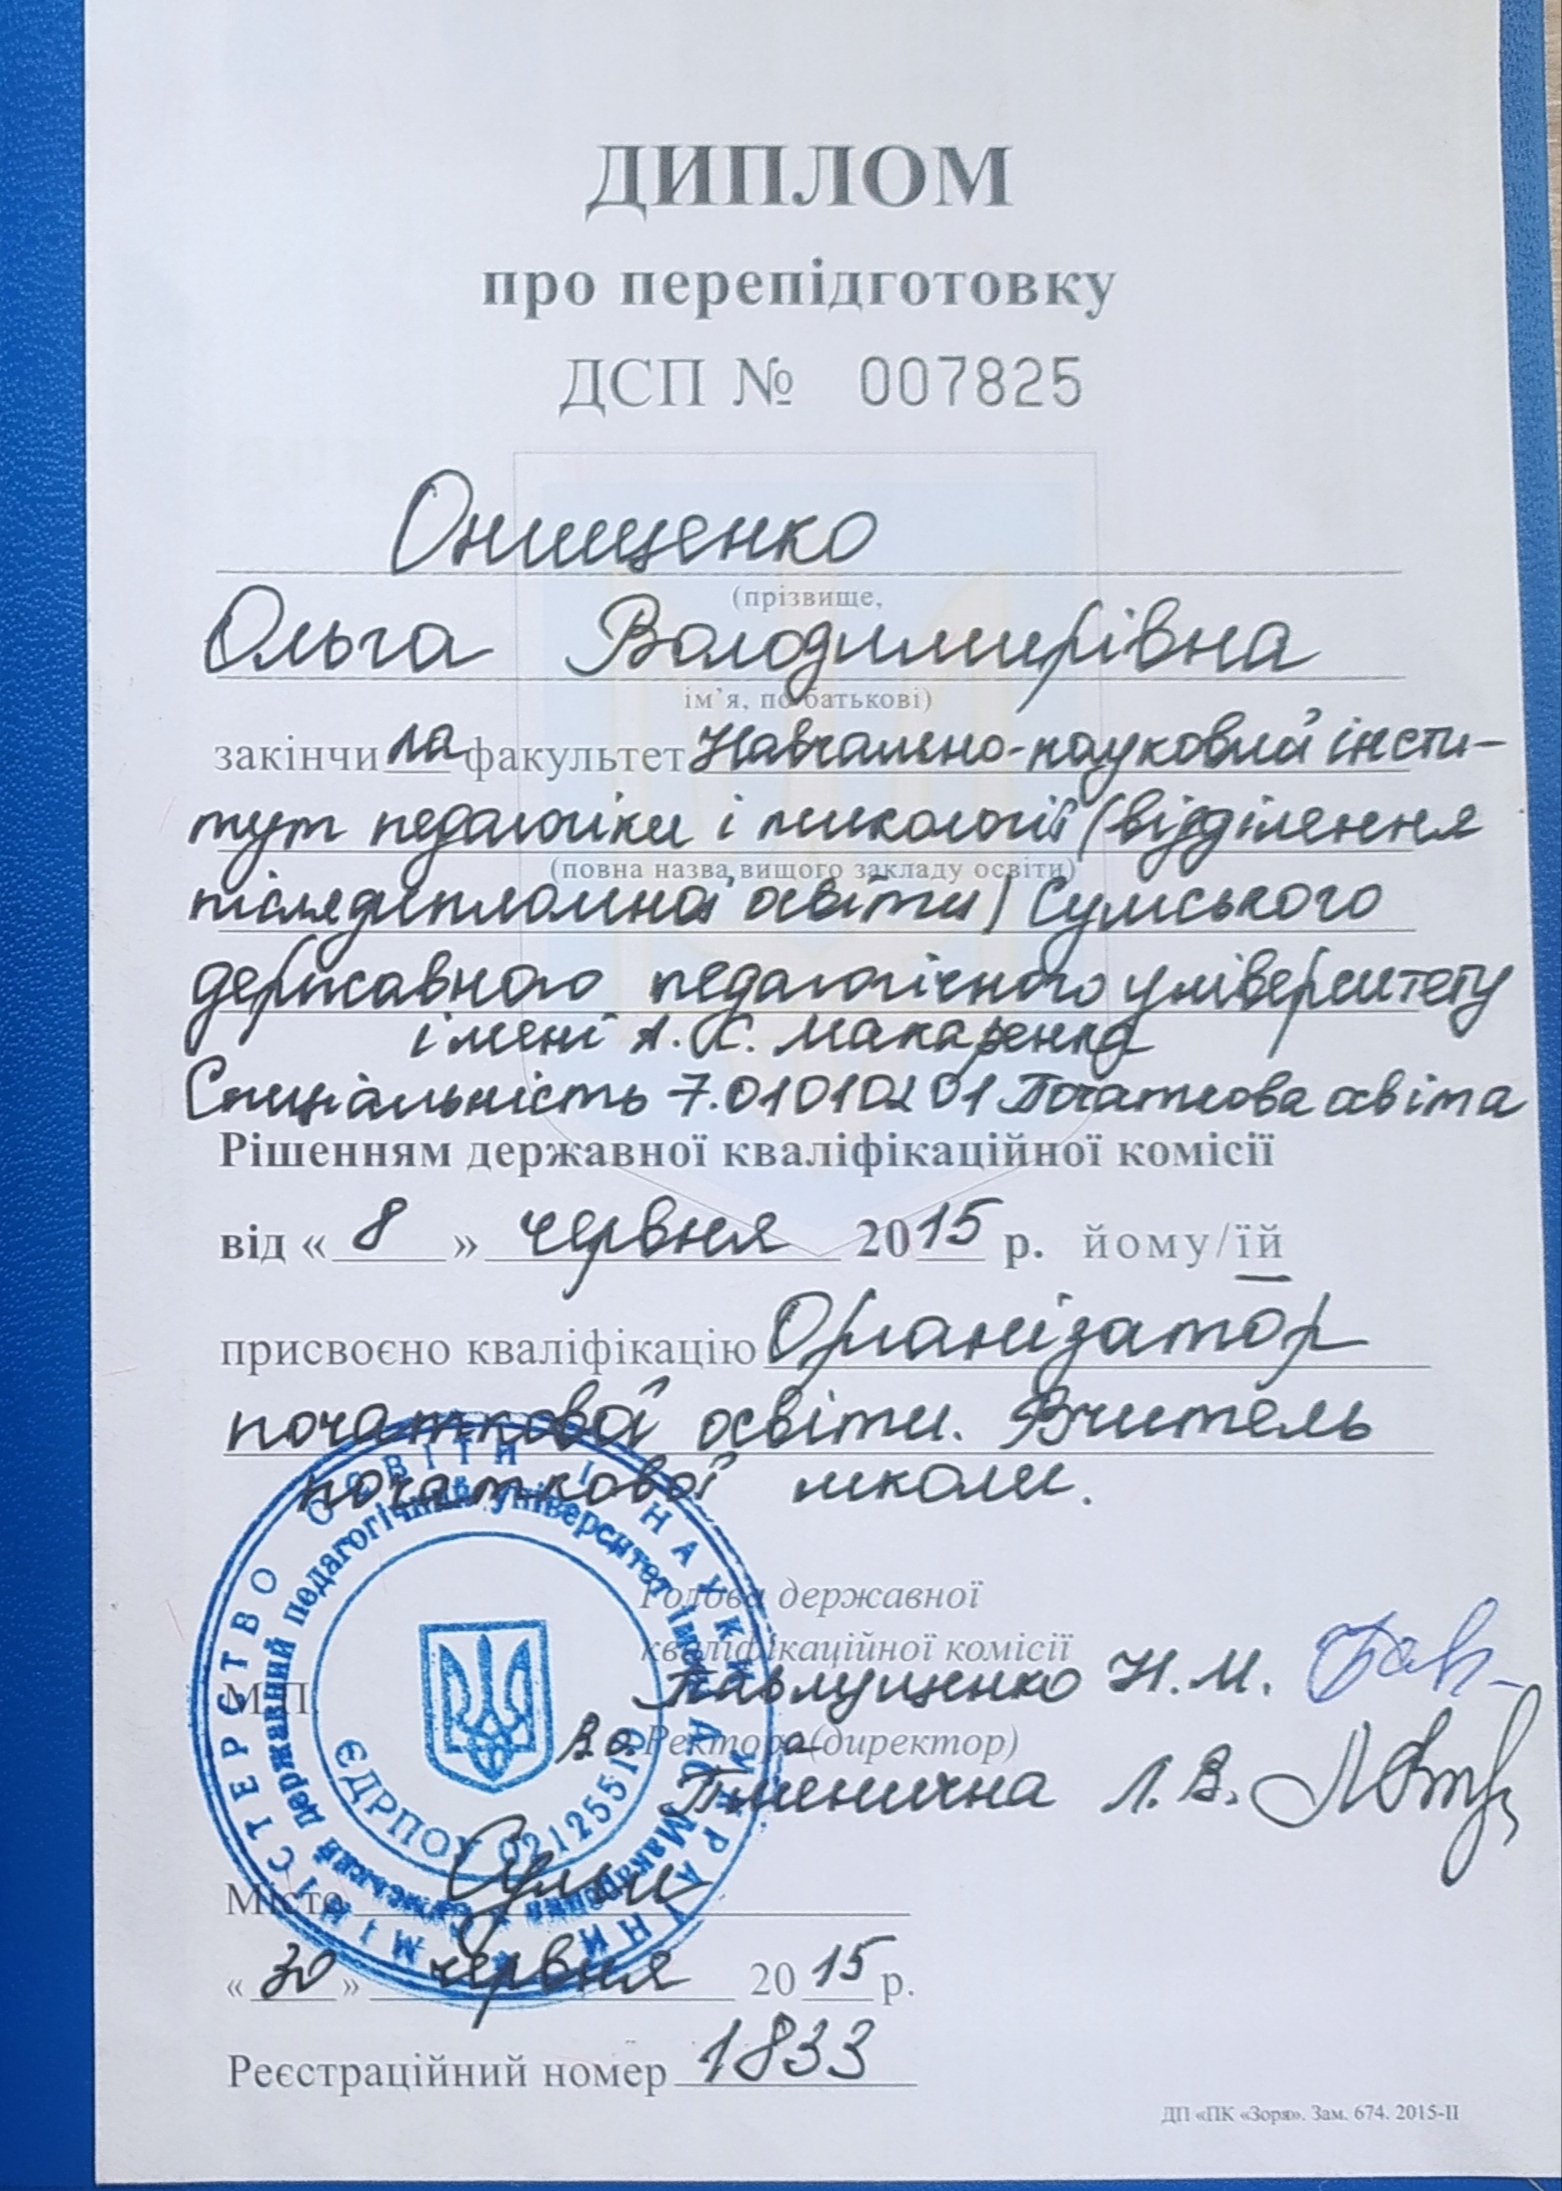 ДИПЛОМ
про перепідготовку
ДСП № 007825
Онищенко
(прізвище,
Ольга Володимирівна
ім’я, по батькові)
закінчила факультет Навчально-науковий інсти-
тут педагогіки і психології (відділення
(повна назва вищого закладу освіти)
післядипломної освіти) Сумського
державного педагогічного університету
імені А. С. Макаренка
Спеціальність 7.01010201 Початкова освіта
Рішенням державної кваліфікаційної комісії
від « 8 » червня 2015 р. йому/їй
присвоєно кваліфікацію Організатор
початкової освіти. Вчитель
початкової школи.
Голова державної
кваліфікаційної комісії
Павлущенко Н.М.
М.П.
В.о. Ректора (директор)
Пшенична Л.В.
Місто Суми
« 30 » червня 2015 р.
Реєстраційний номер 1833
ДП «ПК «Зоря». Зам. 674. 2015-II
МІНІСТЕРСТВО ОСВІТИ І НАУКИ УКРАЇНИ
Сумський державний педагогічний університет імені А.С. Макаренка
ЄДРПОУ 02125510